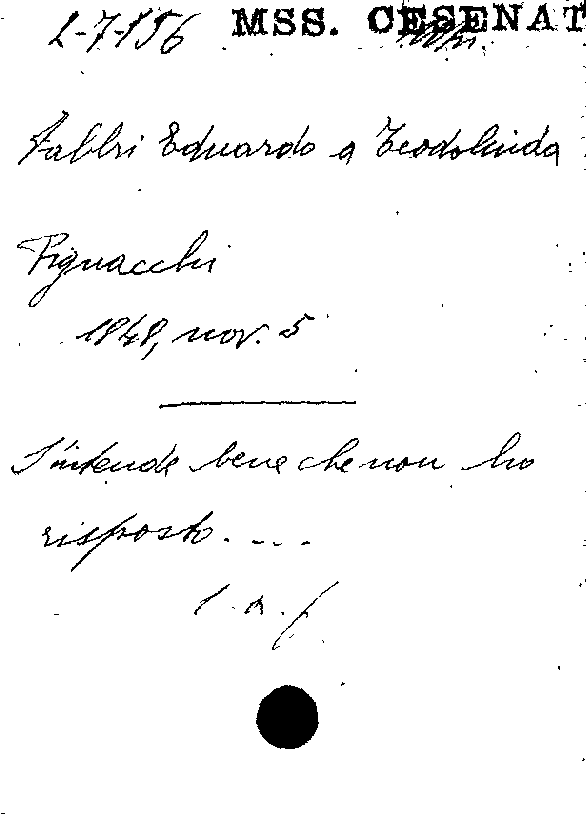 2-7-156 MSS. CESENAT
Fabbri Eduardo a Teodolinda
Pignacchi
1848, nov. 5
S'intende bene che non ho
risposto....
l. a. f.